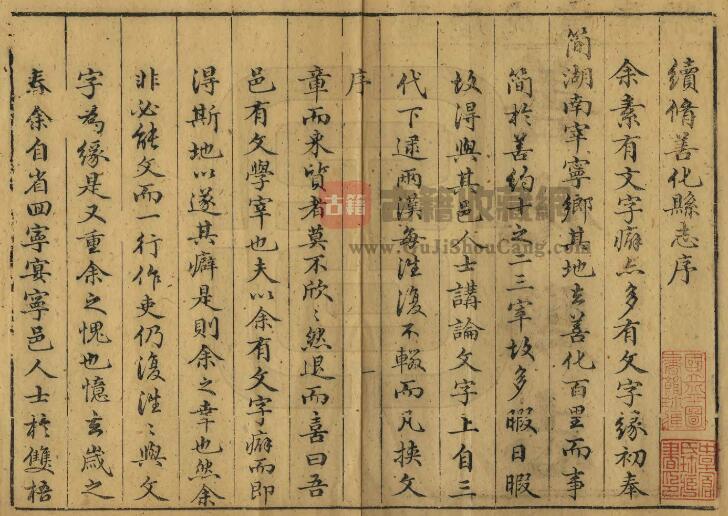 續脩善化縣志序
余素有文字癖亦多有文字緣初奉
簡湖南宰寧鄉其地去善化百里而事
簡於善約十之二三宰故多暇日暇
故得與其邑人士講論文字上自三
代下逮兩漢無徃復不輟而凡挾文
序
一
章而來質者莫不欣〻然退而喜曰吾
邑有文學宰也夫以余有文字癖而即
得斯地以遂其癖是則余之幸也然余
非必能文而一行作吏仍復徃〻與文
字為緣是又重余之愧也憶去歲之
春余自省回寧宴寧邑人士於雙梧
古籍
古籍收藏網
www.GuJiShouCang.com